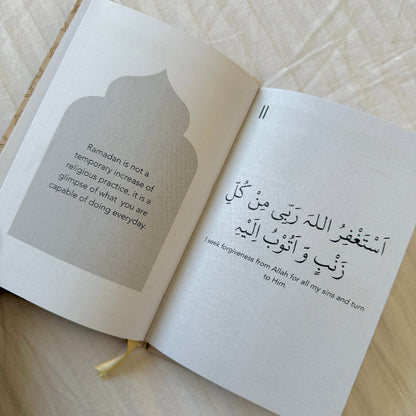 Ramadan is not a
temporary increase of
religious practice, it is a
glimpse of what, you are
capable of doing everyday.
11
اَسْتَغْفِرُ اللهَ رَبِّى مِنْ كُلِّ
زَنْبٍ وَ اَتُوْبُ اِلَيْهِ
I seek forgiveness from Allah for all my sins and turn
to Him.